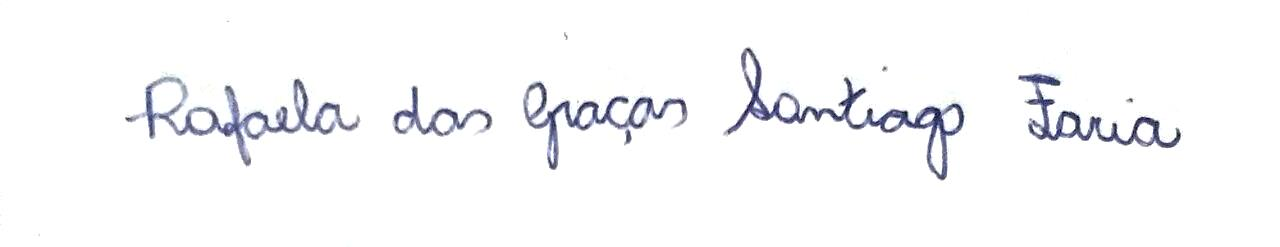 Rafaela das Graças Santiago Faria